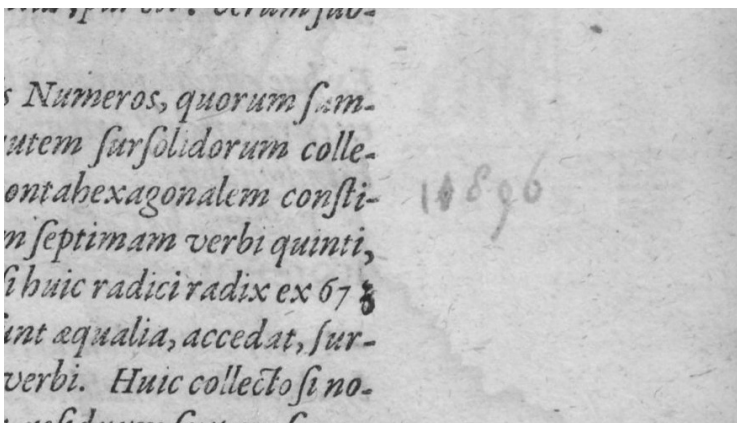 s Numeros, quorum sum-
utem sursolidorum colle-
ontahexagonalem consti-
m septimam verbi quinti,
si huic radici radix ex 67
unt æqualia, accedat, sur-
verbi. Huic collecto si no-